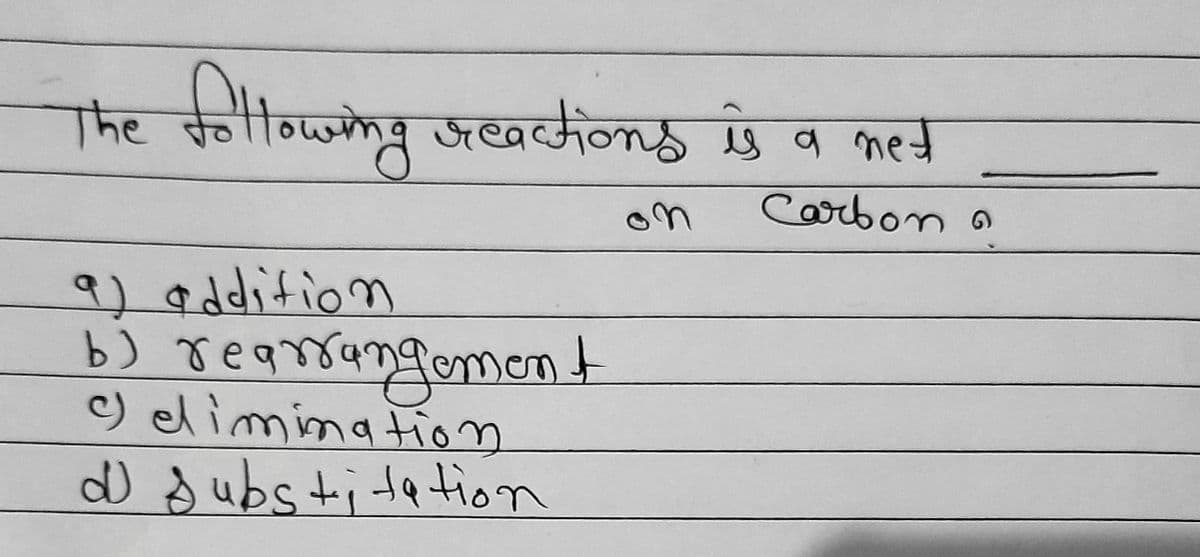 The following reactions is a net ____
on Carbon ?
a) addition
b) rearrangement
c) elimination
d) substitation